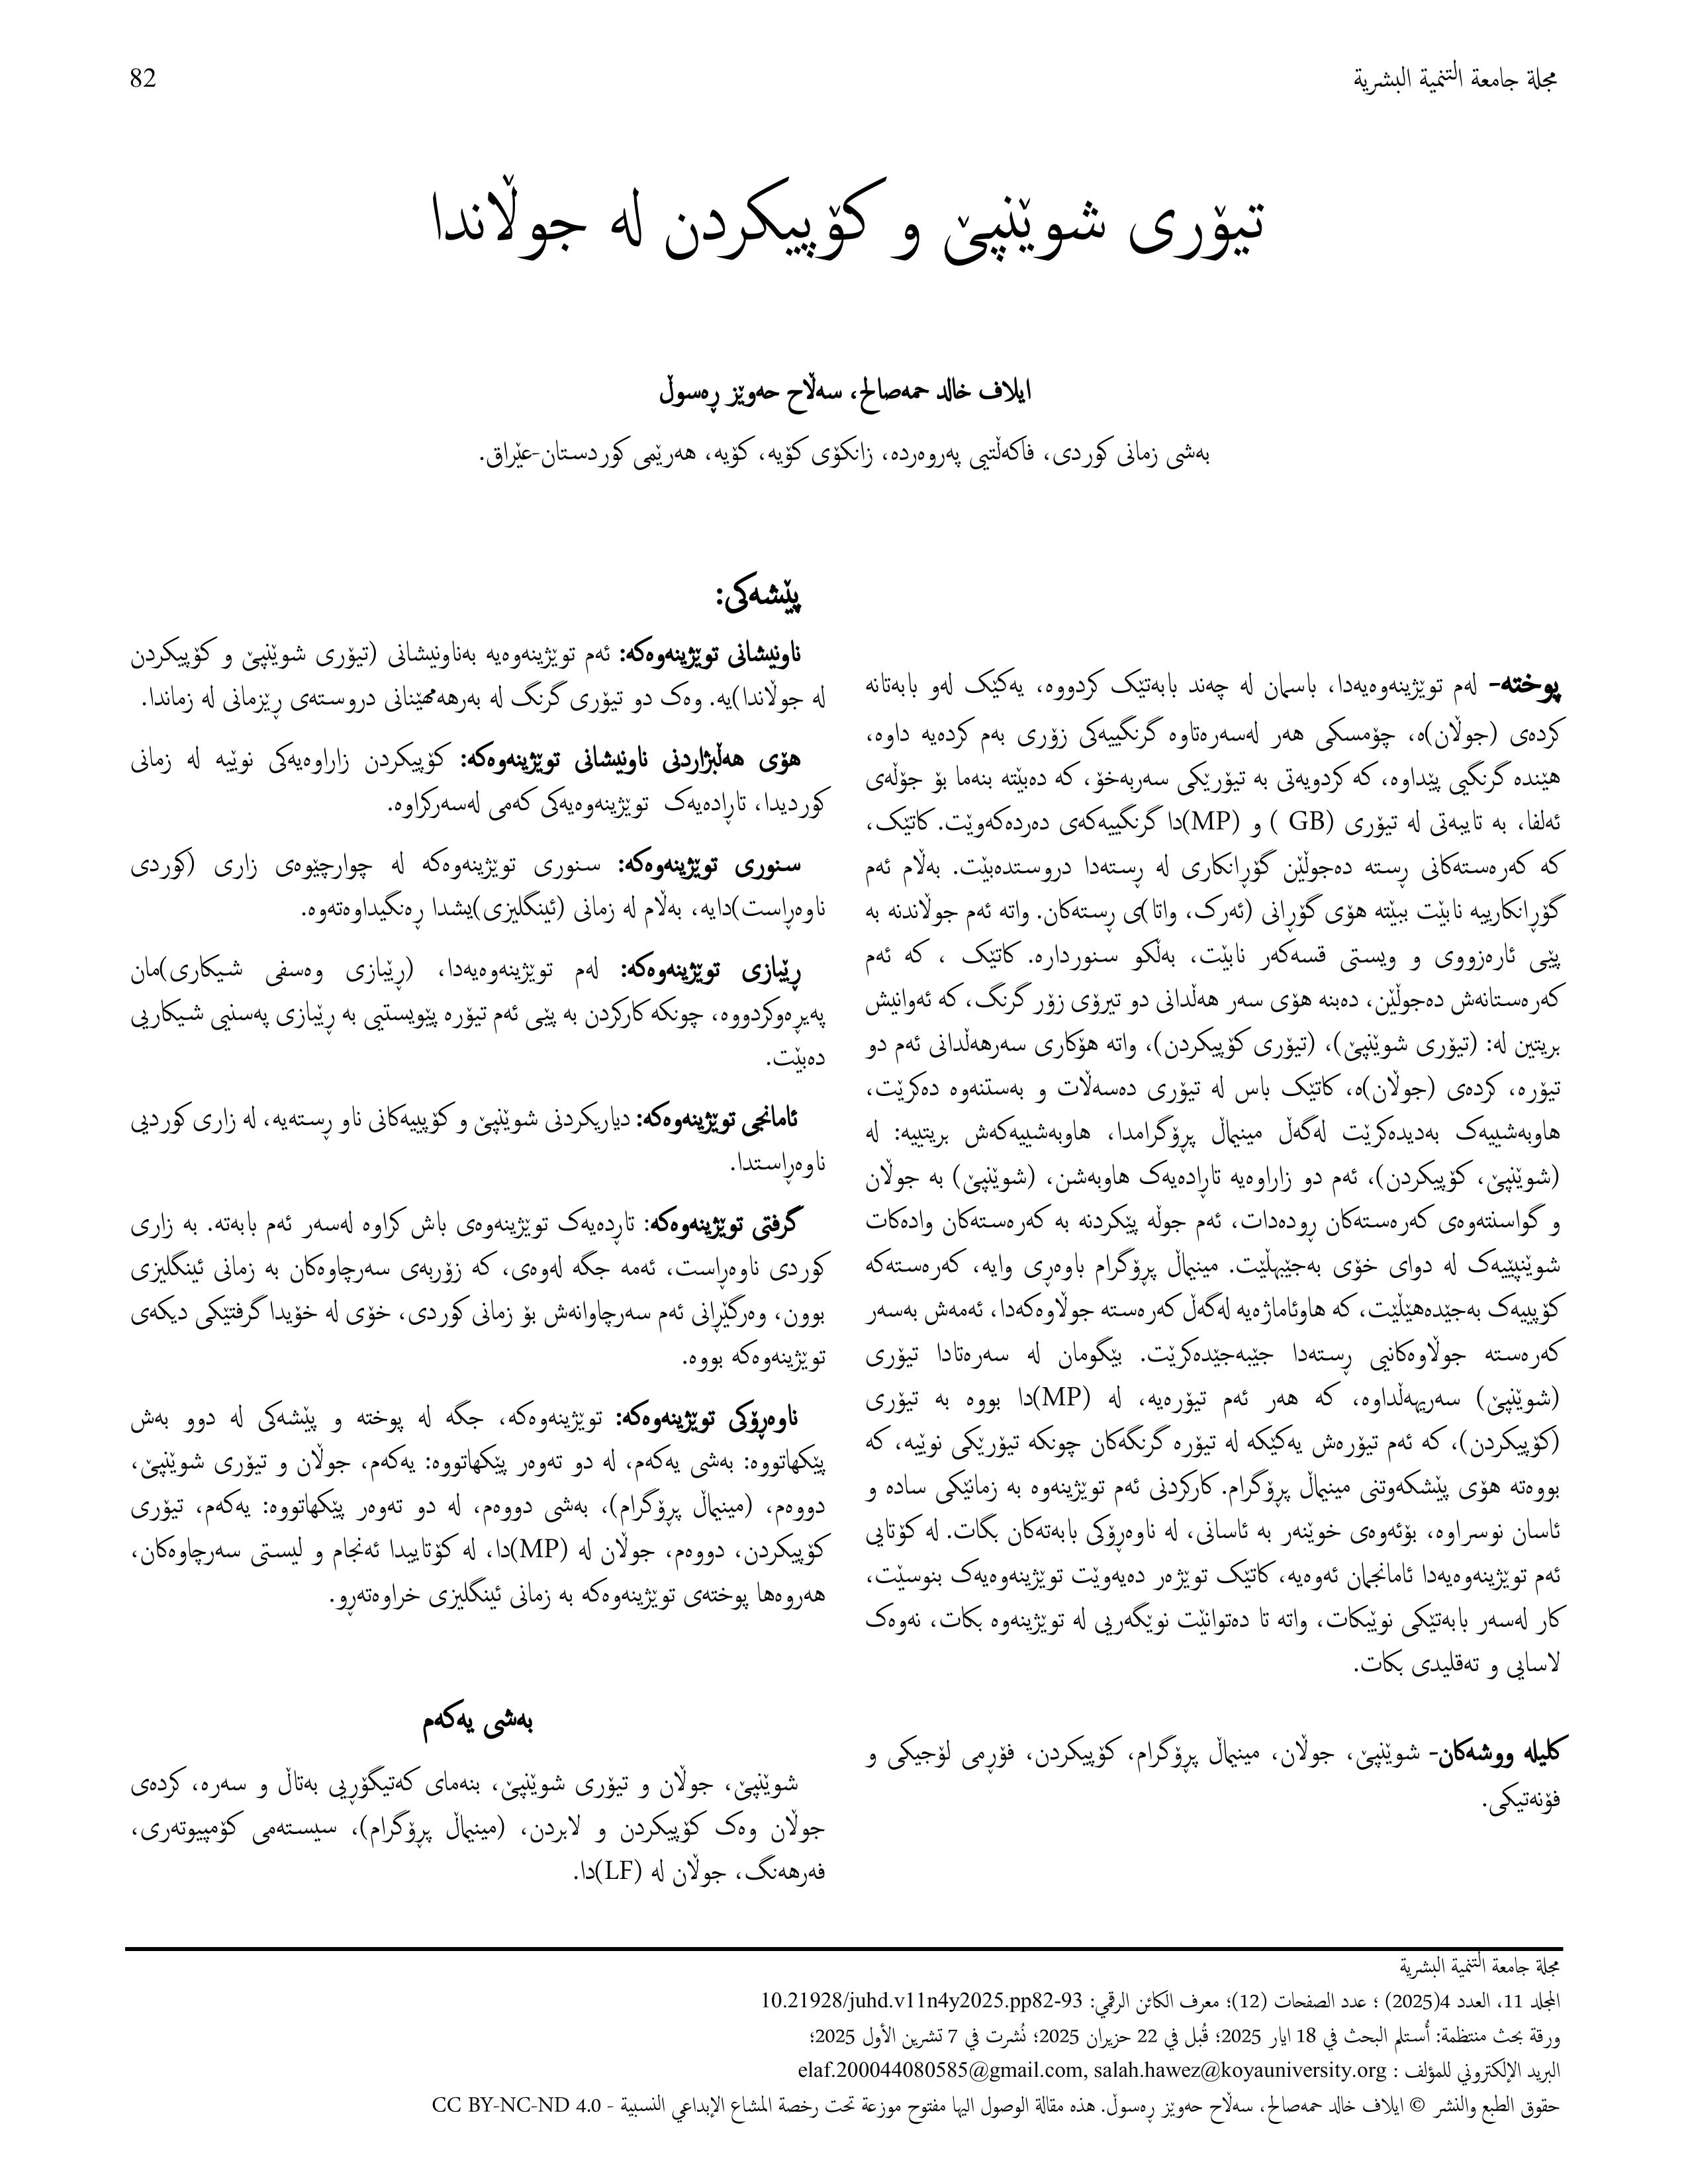 مجلة جامعة التنمية البشرية
82
تیۆری شوێنپێ و کۆپیکردن لە جوڵاندا
ایلاف خالد حمەصالح، سەڵاح حەوێز ڕەسوڵ
بەشی زمانی کوردی، فاکەڵتیی پەروەردە، زانکۆی کۆیە، کۆیە، هەرێمی کوردستان-عێراق.
پوختە- لەم توێژینەوەیەدا، باسمان لە چەند بابەتێک کردووە، یەکێک لەو بابەتانە
کردەی (جوڵان)ە، چۆمسکی هەر لەسەرەتاوە گرنگییەکی زۆری بەم کردەیە داوە،
هێندە گرنگیی پێداوە، کە کردویەتی بە تیۆرێکی سەربەخۆ، کە دەبێتە بنەما بۆ جۆڵەی
ئەلفا، بە تایبەتی لە تیۆری (GB ) و (MP)دا گرنگییەکەی دەردەکەوێت. کاتێک،
کە کەرەستەکانی ڕستە دەجوڵێن گۆڕانکاری لە ڕستەدا دروستدەبێت. بەڵام ئەم
گۆڕانکارییە نابێت ببێتە هۆی گۆڕانی (ئەرک، واتا)ی ڕستەکان. واتە ئەم جوڵاندنە بە
پێی ئارەزووی و ویستی قسەکەر نابێت، بەڵکو سنوردارە. کاتێک ، کە ئەم
کەرەستانەش دەجوڵێن، دەبنە هۆی سەر هەڵدانی دو تیرۆی زۆر گرنگ، کە ئەوانیش
بریتین لە: (تیۆری شوێنپێ)، (تیۆری کۆپیکردن)، واتە هۆکاری سەرهەڵدانی ئەم دو
تیۆرە، کردەی (جوڵان)ە، کاتێک باس لە تیۆری دەسەڵات و بەستنەوە دەکرێت،
هاوبەشییەک بەدیدەکرێت لەگەڵ مینیماڵ پڕۆگرامدا، هاوبەشییەکەش بریتییە: لە
(شوێنپێ، کۆپیکردن)، ئەم دو زاراوەیە تاڕادەیەک هاوبەشن، (شوێنپێ) بە جوڵان
و گواستنەوەی کەرەستەکان ڕودەدات، ئەم جوڵە پێکردنە بە کەرەستەکان وادەکات
شوێنپێیەک لە دوای خۆی بەجێبهڵێت. مینیماڵ پڕۆگرام باوەڕی وایە، کەرەستەکە
کۆپییەک بەجێدەهێڵێت، کە هاوئاماژەیە لەگەڵ کەرەستە جولاوەکەدا، ئەمەش بەسەر
کەرەستە جولاوەکانیی ڕستەدا جێبەجێدەکرێت. بێگومان لە سەرەتادا تیۆری
(شوێنپێ) سەریهەڵداوە، کە هەر ئەم تیۆرەیە، لە (MP)دا بووە بە تیۆری
(کۆپیکردن)، کە ئەم تیۆرەش یەکێکە لە تیۆرە گرنگەکان چونکە تیۆرێکی نوێیە، کە
بووەتە هۆی پێشکەوتنی مینیماڵ پڕۆگرام. کارکردنی ئەم توێژینەوە بە زمانێکی سادە و
ئاسان نوسراوە، بۆئەوەی خوێنەر بە ئاسانی، لە ناوەڕۆکی بابەتەکان بگات. لە کۆتایی
ئەم توێژینەوەیەدا ئامانجمان ئەوەیە، کاتێک توێژەر دەیەوێت توێژینەوەیەک بنوسێت،
کار لەسەر بابەتێکی نوێبکات، واتە تا دەتوانێت نوێگەریی لە توێژینەوە بکات، نەوەک
لاسایی و تەقلیدی بکات.
کلیلە ووشەکان- شوێنپێ، جوڵان، مینیماڵ پڕۆگرام، کۆپیکردن، فۆڕمی لۆجیکی و
فۆنەتیکی.
پێشەکی:
ناونیشانی توێژینەوەکە: ئەم توێژینەوەیە بەناونیشانی (تیۆری شوێنپێ و کۆپیکردن
لە جوڵاندا)یە. وەک دو تیۆری گرنگ لە بەرهەمهێنانی دروستەی ڕێزمانی لە زماندا.
هۆی هەڵبژاردنی ناونیشانی توێژینەوەکە: کۆپیکردن زاراوەیەکی نوێیە لە زمانی
کوردیدا، تاڕادەیەک توێژینەوەیەکی کەمی لەسەرکراوە.
سنوری توێژینەوەکە: سنوری توێژینەوەکە لە چوارچێوەی زاری (کوردی
ناوەڕاست)دایە، بەڵام لە زمانی (ئینگلیزی)یشدا ڕەنگیداوەتەوە.
ڕێبازی توێژینەوەکە: لەم توێژینەوەیەدا، (ڕێبازی وەسفی شیکاری)مان
پەیڕەوکردووە، چونکە کارکردن بە پێی ئەم تیۆرە پێویستیی بە ڕێبازی پەسنیی شیکاریی
دەبێت.
ئامانجی توێژینەوەکە: دیاریکردنی شوێنپێ و کۆپییەکانی ناو ڕستەیە، لە زاری کوردیی
ناوەڕاستدا.
گرفتی توێژینەوەکە: تاردەیەک توێژینەوەی باش کراوە لەسەر ئەم بابەتە. بە زاری
کوردی ناوەڕاست، ئەمە جگە لەوەی، کە زۆربەی سەرچاوەکان بە زمانی ئینگلیزی
بوون، وەرگێڕانی ئەم سەرچاوانەش بۆ زمانی کوردی، خۆی لە خۆیدا گرفتێکی دیکەی
توێژینەوەکە بووە.
ناوەڕۆکی توێژینەوەکە: توێژینەوەکە، جگە لە پوختە و پێشەکی لە دوو بەش
پێکهاتووە: بەشی یەکەم، لە دو تەوەر پێکهاتووە: یەکەم، جوڵان و تیۆری شوێنپێ،
دووەم، (مینیماڵ پڕۆگرام)، بەشی دووەم، لە دو تەوەر پێکهاتووە: یەکەم، تیۆری
کۆپیکردن، دووەم، جوڵان لە (MP)دا، لە کۆتاییدا ئەنجام و لیستی سەرچاوەکان،
هەروەها پوختەی توێژینەوەکە بە زمانی ئینگلیزی خراوەتەڕو.
بەشی یەکەم
شوێنپێ، جوڵان و تیۆری شوێنپێ، بنەمای کەتیگۆریی بەتاڵ و سەرە، کردەی
جوڵان وەک کۆپیکردن و لابردن، (مینیماڵ پڕۆگرام)، سیستەمی کۆمپیوتەری،
فەرهەنگ، جوڵان لە (LF)دا.
مجلة جامعة التنمية البشرية
المجلد 11، العدد 4(2025) ؛ عدد الصفحات (12)؛ معرف الكائن الرقمي: 10.21928/juhd.v11n4y2025.pp82-93
ورقة بحث منتظمة: أُستلم البحث في 18 ايار 2025؛ قُبل في 22 حزيران 2025؛ نُشرت في 7 تشرين الأول 2025؛
البريد الإلكتروني للمؤلف : elaf.200044080585@gmail.com, salah.hawez@koyauniversity.org
حقوق الطبع والنشر © ایلاف خالد حمەصالح، سەڵاح حەوێز ڕەسوڵ. هذه مقالة الوصول اليها مفتوح موزعة تحت رخصة المشاع الإبداعي النسبية - CC BY-NC-ND 4.0